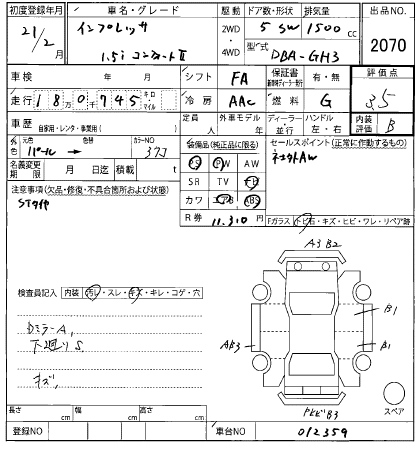 初度登録年月 車名・グレード 駆動 ドア数・形状 排気量 出品NO.
21/2月 インプレッサ 2WD 5 SW 1500 cc
1.5i 4WD 型式 DBA-GH3 2070
車検 年 月 シフト FA 保証書 有・無 評価点
走行 18万0千745 キロ マイル 冷房 AAC 燃料 G 3.5
車歴 自家用・レンタ・事業用( ) 定員 人 外車モデル 年 ディーラー・並行 ハンドル 左・右 内装評価 B
外色 元色 パール → 色替 カラーNO 37J 装備品(純正品に限る) セールスポイント(正常に作動するもの)
名義変更期限 月 日迄 積載 t PS PW AW
注意事項(欠品・修復・不具合箇所および状態) SR TV ナビ
カワ エアB ABS
R券 11,310円 Fガラス トビ石・キズ・ヒビ・ワレ・リペア跡
A3 B2
検査員記入 内装 汚レ・スレ・キズ・キレ・コゲ・穴
B1
DミラーA、
下廻りS、
AB3
B1
キズ、
B3
スペア
長さ cm 幅 cm 高さ cm
登録NO 車台NO 012359